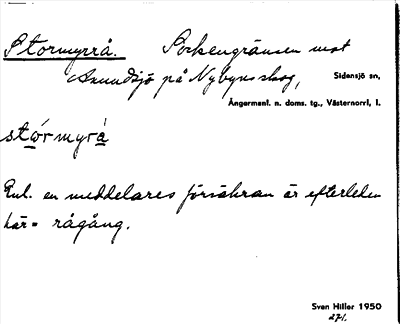 Stormyrrå. Sockengränsen mot
Anundsjö på Nybyns skog,
Sidensjö sn,
Ångermanl. n. doms. tg., Västernorrl. l.
stórmyrà
Enl. en meddelares försäkran är efterleden
här = rågång.
Sven Hiller 1950
271.